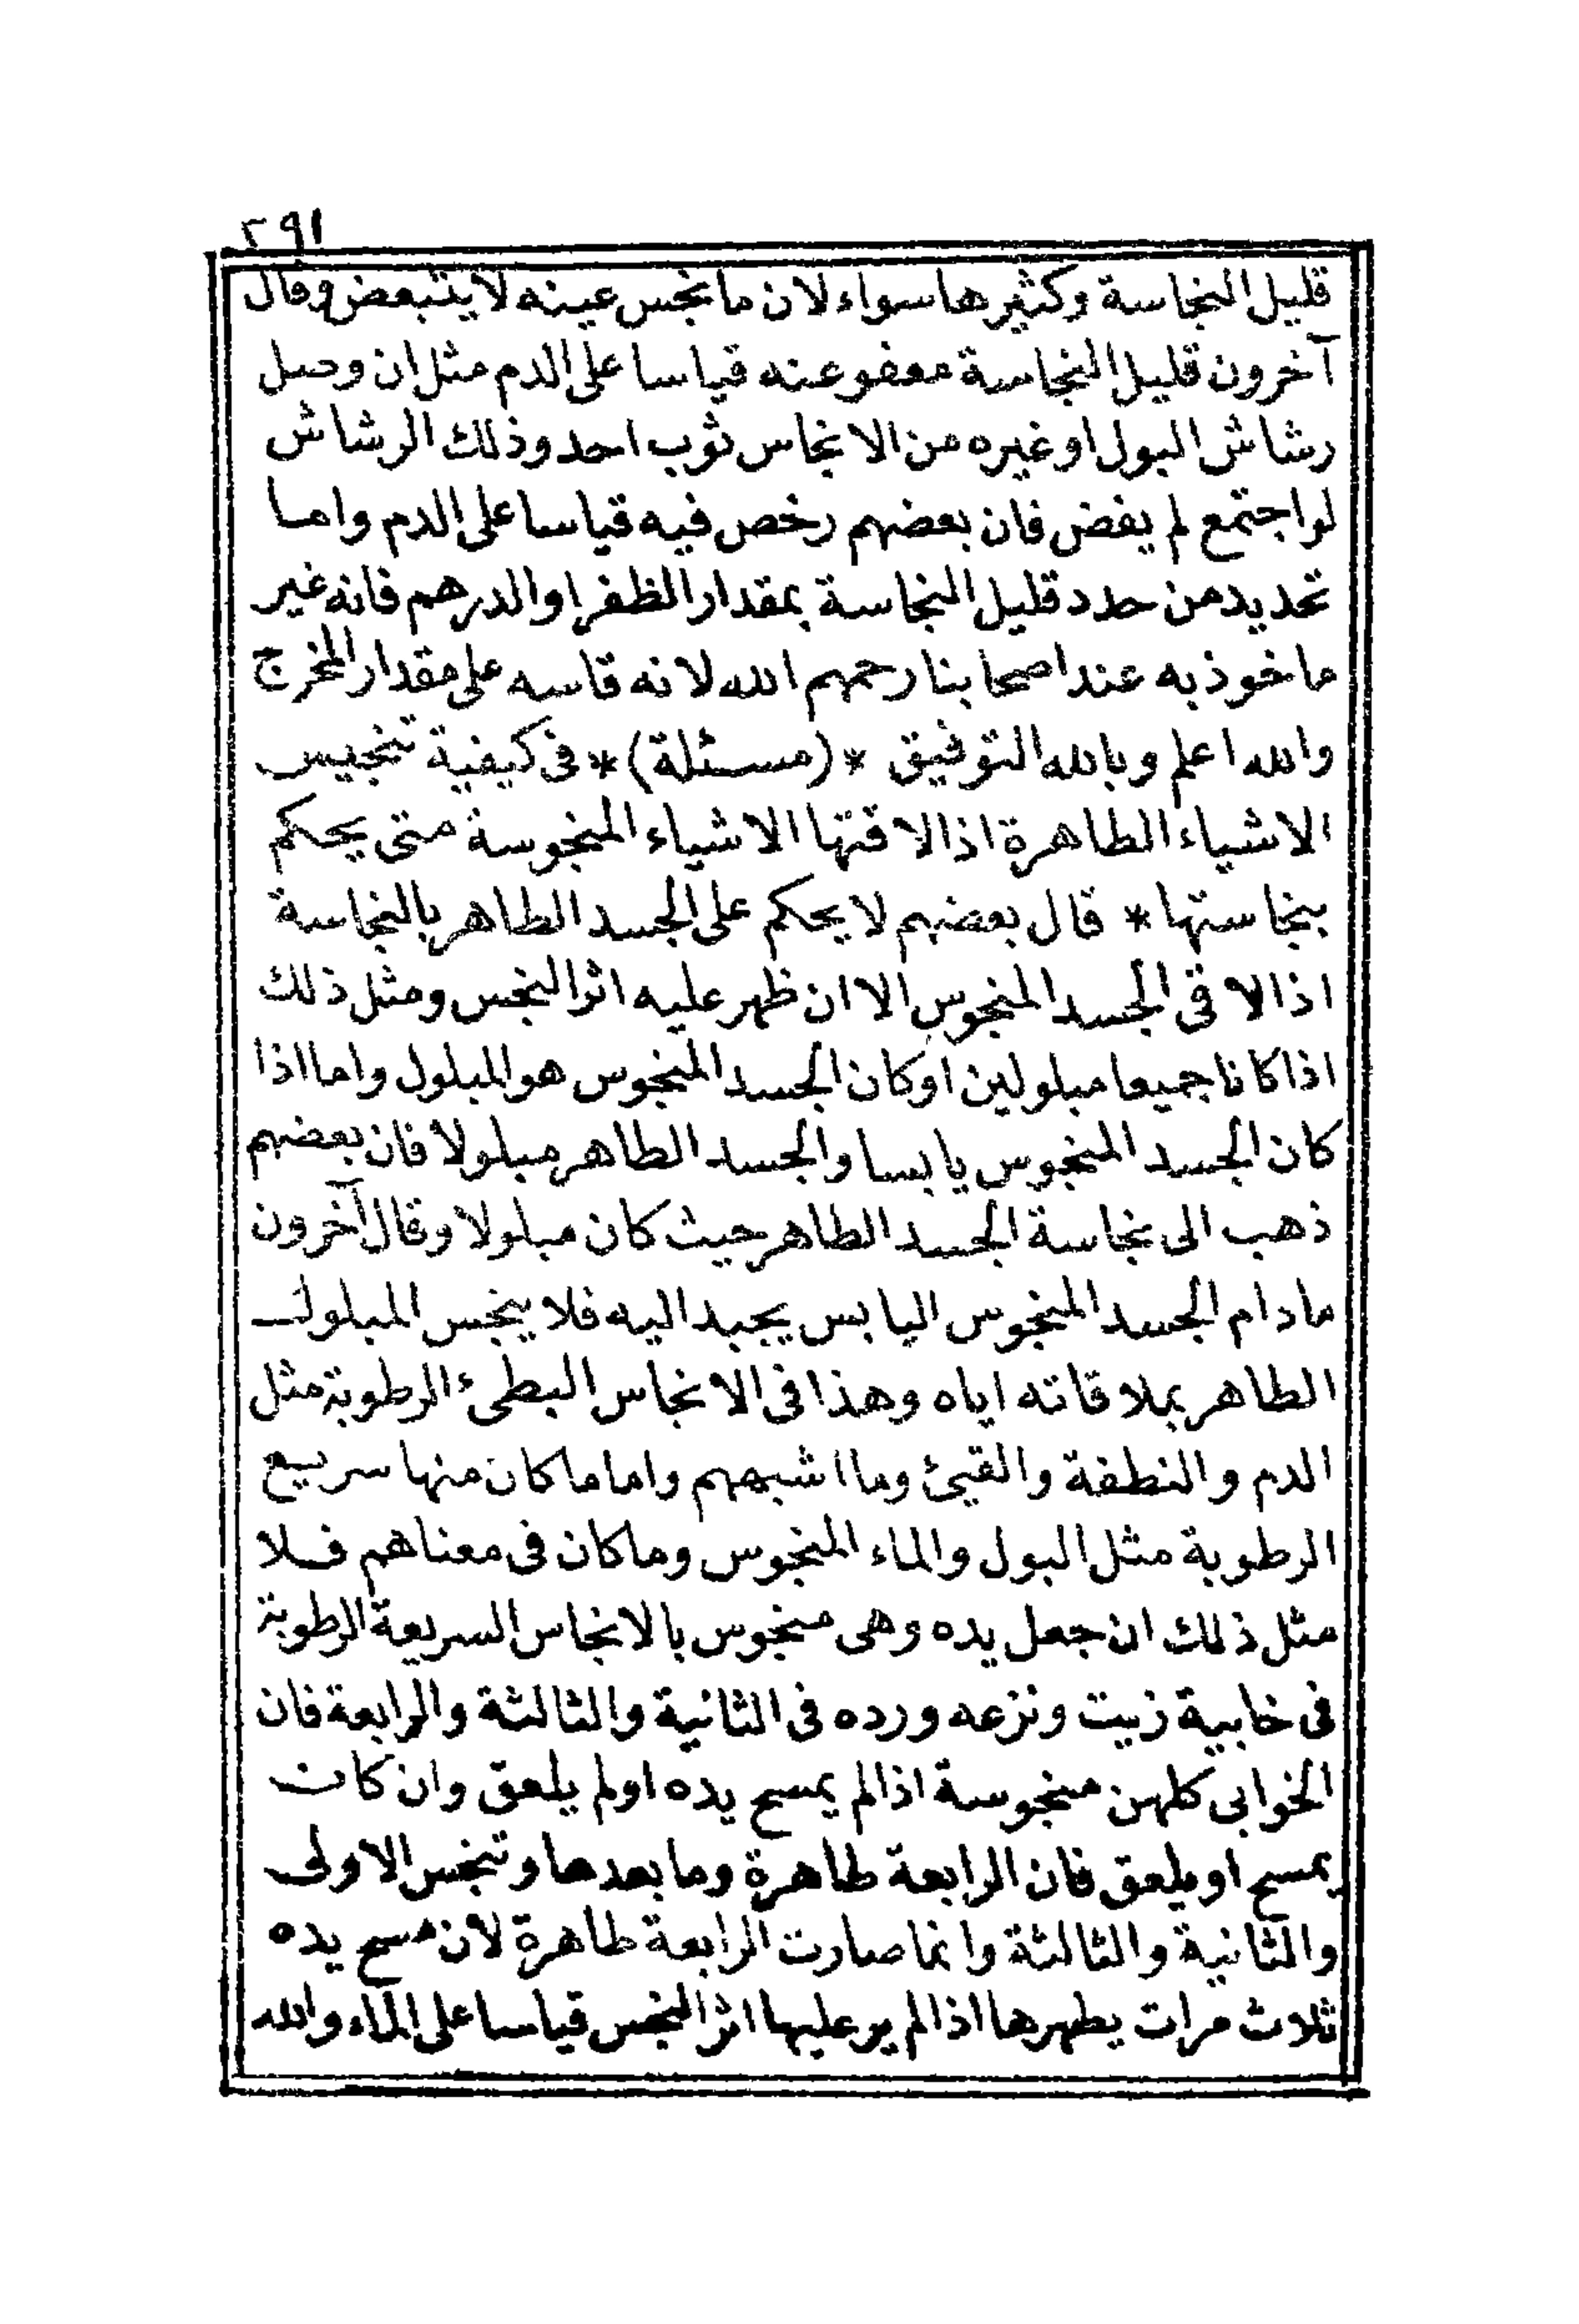 ٢٩١
قليل النجاسة وكثيرها سواء لان ما نجس عينه لا يتبعض وقال
آخرون قليل النجاسة معفو عنه قياسا على الدم مثل ان وصل
رشاش البول او غيره من الانجاس ثوب احد وذلك الرشاش
لو اجتمع لم يفض فان بعضهم رخص فيه قياسا على الدم واما
تحديد من حدد قليل النجاسة بمقدار الظفر او الدرهم فانه غير
ماخوذ به عند اصحابنا رحمهم الله لانه قاسه على مقدار المخرج
والله اعلم وبالله التوفيق *(مسئلة)* فى كيفية تنجيس
الاشياء الطاهرة اذا لاقتها الاشياء المنجوسة متى يحكم
بنجاستها * قال بعضهم لا يحكم على الجسد الطاهر بالنجاسة
اذا لاقى الجسد المنجوس الا ان ظهر عليه اثر النجس ومثل ذلك
اذا كانا جميعا مبلولين او كان الجسد المنجوس هو المبلول واما اذا
كان الجسد المنجوس يابسا والجسد الطاهر مبلولا فان بعضهم
ذهب الى نجاسة الجسد الطاهر حيث كان مبلولا وقال آخرون
ما دام الجسد المنجوس اليابس يجبد اليه فلا ينجس المبلول
الطاهر بملاقاته اياه وهذا فى الانجاس البطئ الرطوبة مثل
الدم والنطفة والقيئ وما اشبههم واما ما كان منها سريع
الرطوبة مثل البول والماء المنجوس وما كان فى معناهم فلا
مثل ذلك ان جعل يده وهى منجوس بالانجاس السريعة الرطوبة
فى خابية زيت ونزعه ورده فى الثانية والثالثة والرابعة فان
الخوابى كلهن منجوسة اذا لم يمسح يده او لم يلعق وان كان
يمسح او يلعق فان الرابعة طاهرة وما بعدها وتنجس الاولى
والثانية والثالثة وانما صارت الرابعة طاهرة لان مسح يده
ثلاث مرات يطهرها اذا لم ير عليها اثر النجس قياسا على الماء والله